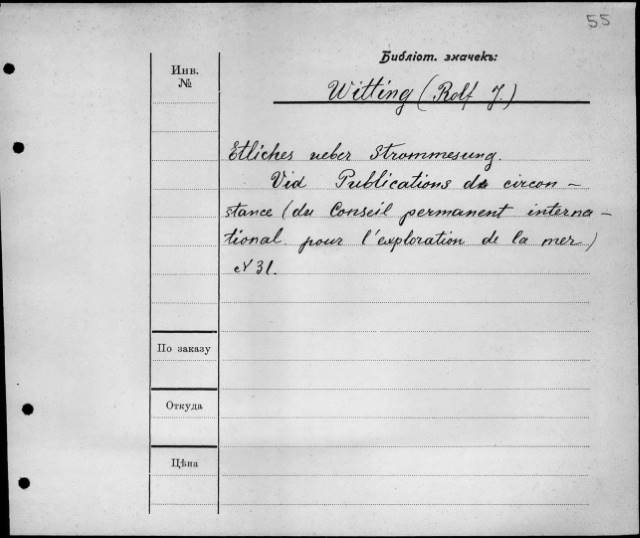 55
Библіот. значекъ:
Инв.
№
Witting (Rolf J.)
Etliches ueber Strommesung.
Vid Publications de circon-
stance (du Conseil permanent interna-
tional pour l'exploration de la mer)
N 31.
По заказу
Откуда
Цѣна